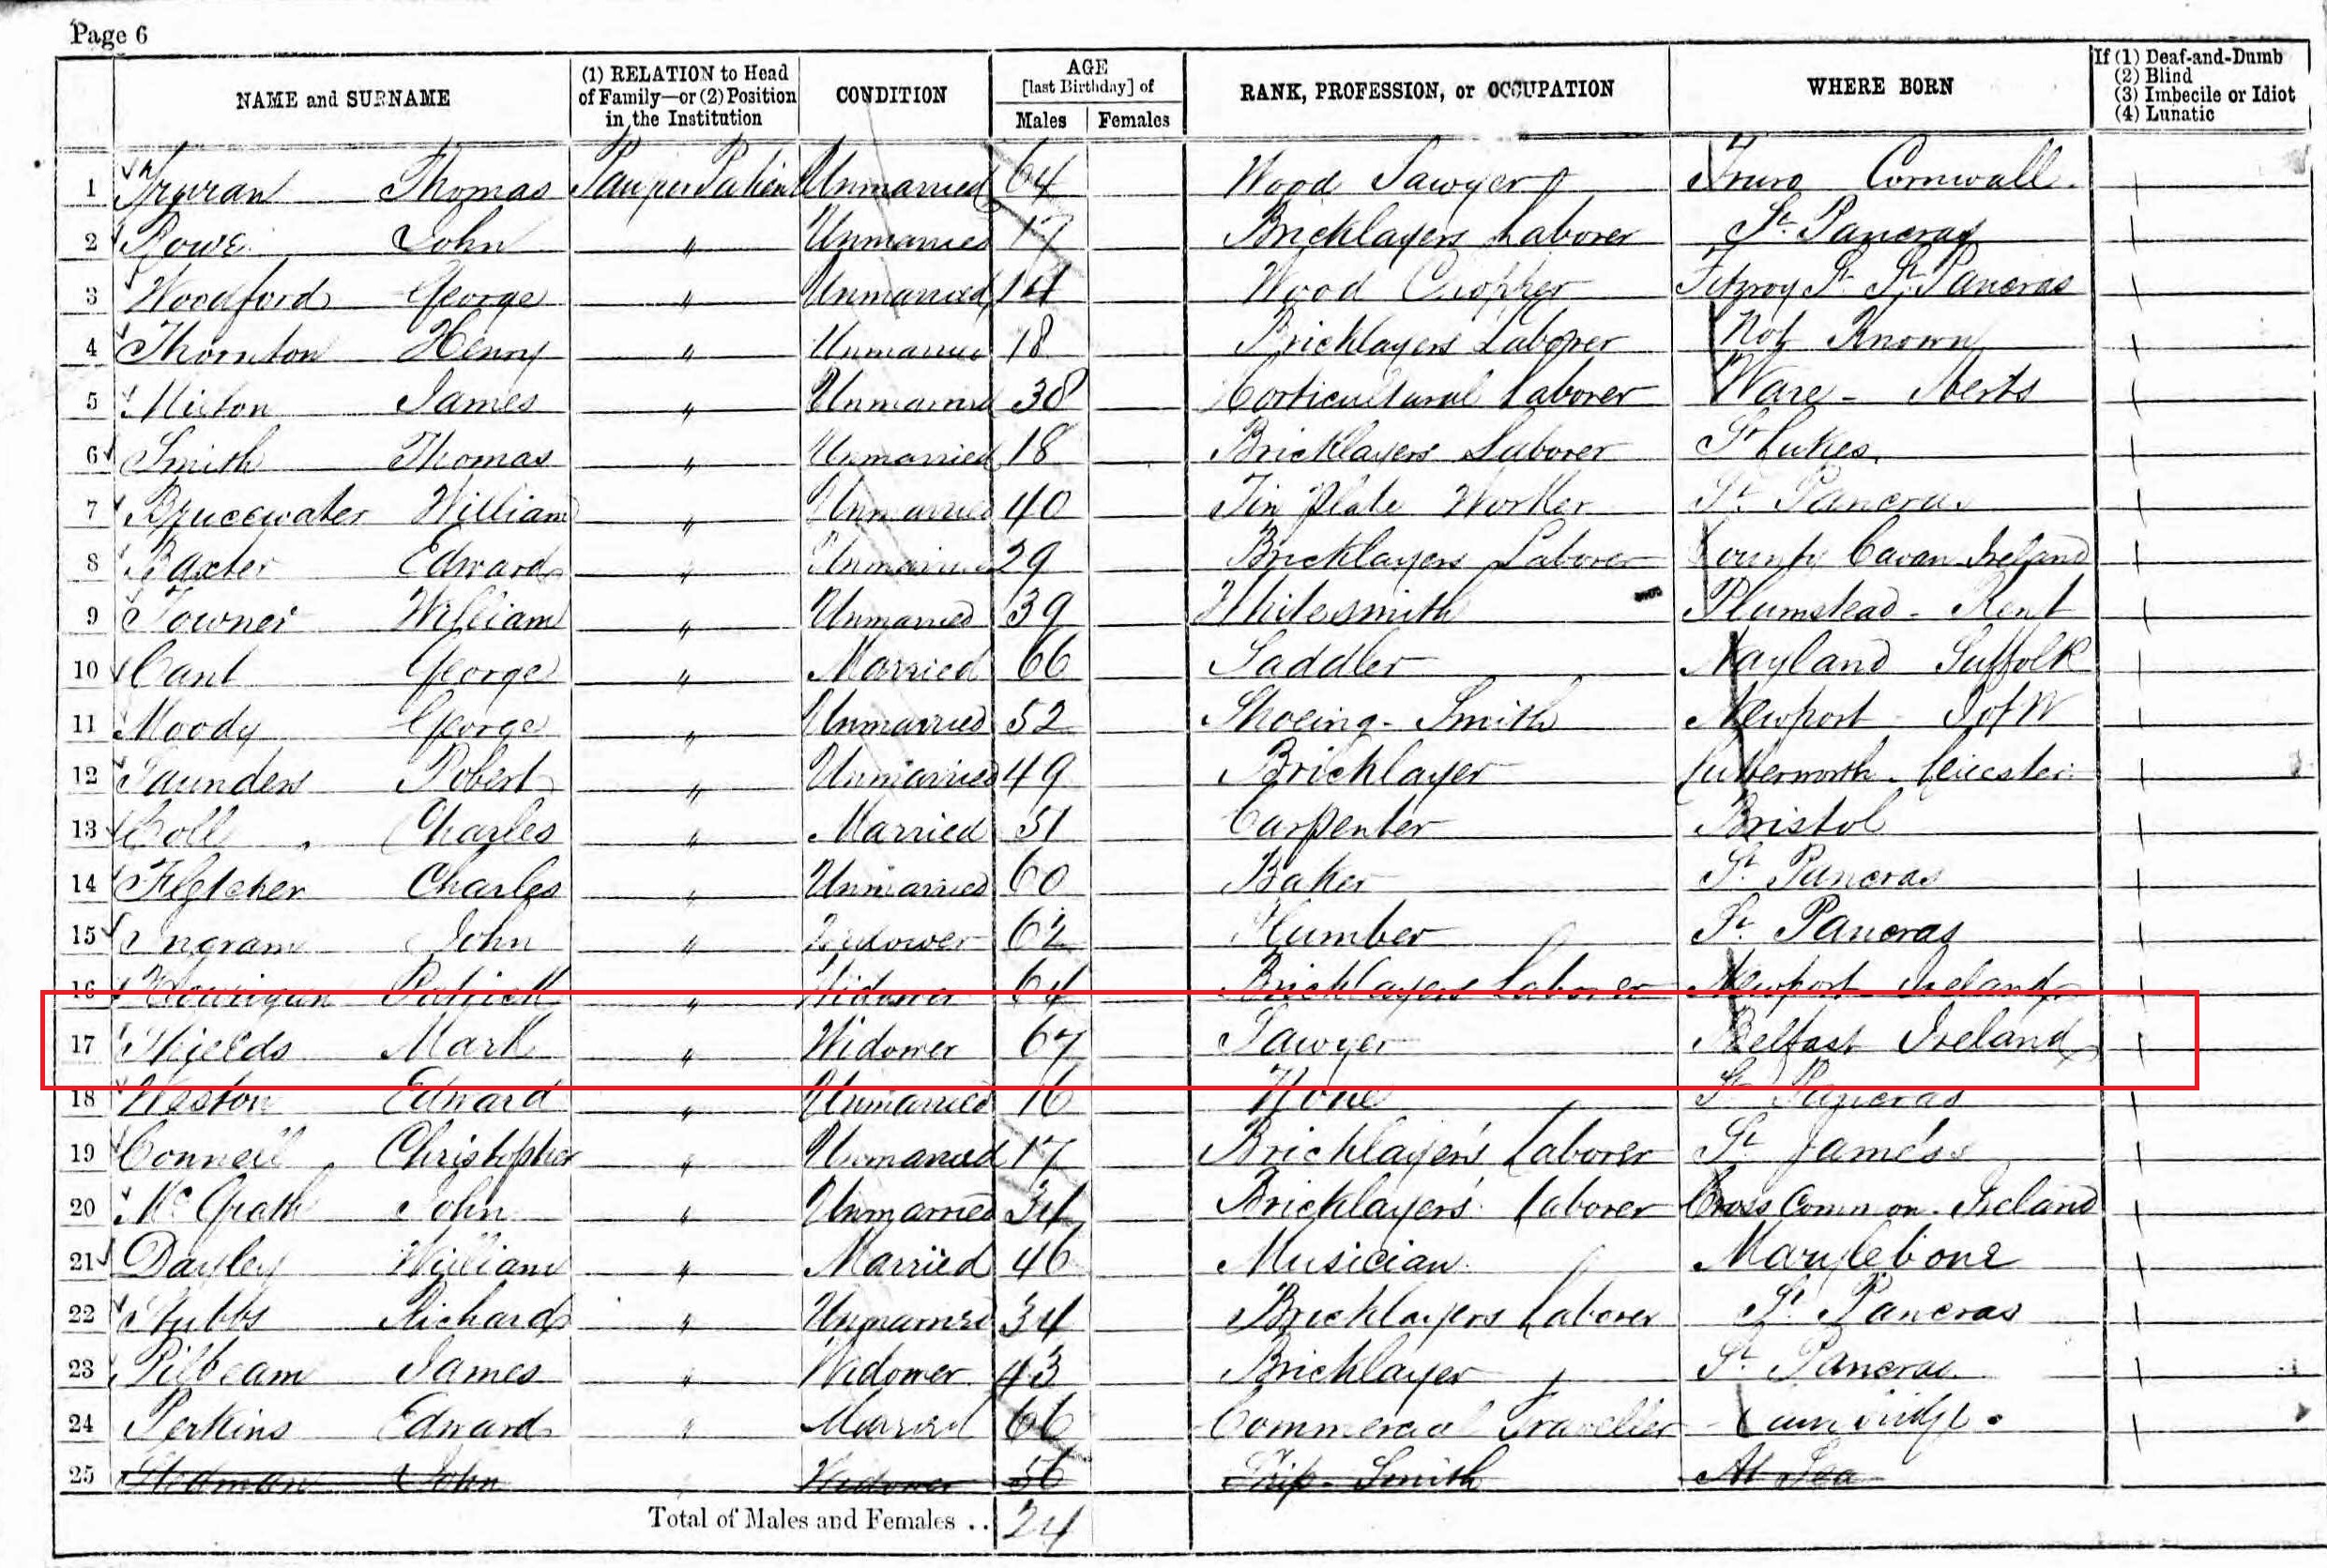 Page 6
NAME and SURNAME (1) RELATION to Head of Family—or (2) Position in the Institution CONDITION AGE [last Birthday] of Males Females RANK, PROFESSION, or OCCUPATION WHERE BORN If (1) Deaf-and-Dumb (2) Blind (3) Imbecile or Idiot (4) Lunatic
1 Thomas Pauper Patient Unmarried 64 Wood Sawyer Truro Cornwall
2 Rowe John " Unmarried 17 Bricklayers Laborer St. Pancras
3 Woodford George " Unmarried 14 Wood Chopper Fitzroy St. St. Pancras
4 Thornton Henry " Unmarried 18 Bricklayers Laborer Not Known
5 James " Unmarried 38 Horticultural Laborer Ware - Herts
6 Smith Thomas " Unmarried 18 Bricklayers Laborer St Lukes
7 William " Unmarried 40 Tin Plate Worker St. Pancras
8 Baxter Edward " Unmarried 29 Bricklayers Laborer County Cavan Ireland
9 Towner William " Unmarried 39 Whitesmith Plumstead - Kent
10 Cant George " Married 66 Saddler Nayland Suffolk
11 Moody George " Unmarried 52 Shoeing - Smith Newport I of W
12 Saunders Robert " Unmarried 49 Bricklayer Lutterworth Leicester
13 Coll Charles " Married 51 Carpenter Bristol
14 Fletcher Charles " Unmarried 60 Baker St. Pancras
15 Ingram John " Widower 62 Plumber St. Pancras
16 Patrick " Widower 64 Bricklayers Laborer Newport Ireland
17 Shields Mark " Widower 67 Sawyer Belfast Ireland
18 Weston Edward " Unmarried 16 None St. Pancras
19 Conneil Christopher " Unmarried 17 Bricklayers Laborer St. James's
20 McGrath John " Unmarried 34 Bricklayers Laborer Cross Common Ireland
21 Dayley William " Married 46 Musician Marylebone
22 Stubbs Richard " Unmarried 34 Bricklayers Laborer St. Pancras
23 Pilbeam James " Widower 43 Bricklayer St. Pancras
24 Perkins Edward " Married 66 Commercial Traveller Cambridge
25 Stedman John Widower 56 Ship - Smith At Sea
Total of Males and Females .. 24